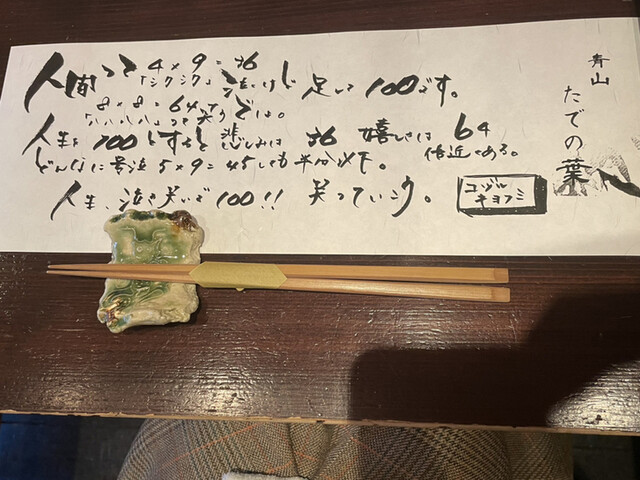 人間って 4×9=36
「シクシク」泣いけど 足して100です。
8×8=64って
「ハハハハ」って笑うでは。
人生を100とすると 悲しみは 36 嬉しさは 64
倍近くある。
どんなに号泣 5×9=45しても 半分以下。
人生、泣き笑いで100!! 笑っていこう。
コヅル
キヨフミ
青山
たでの葉